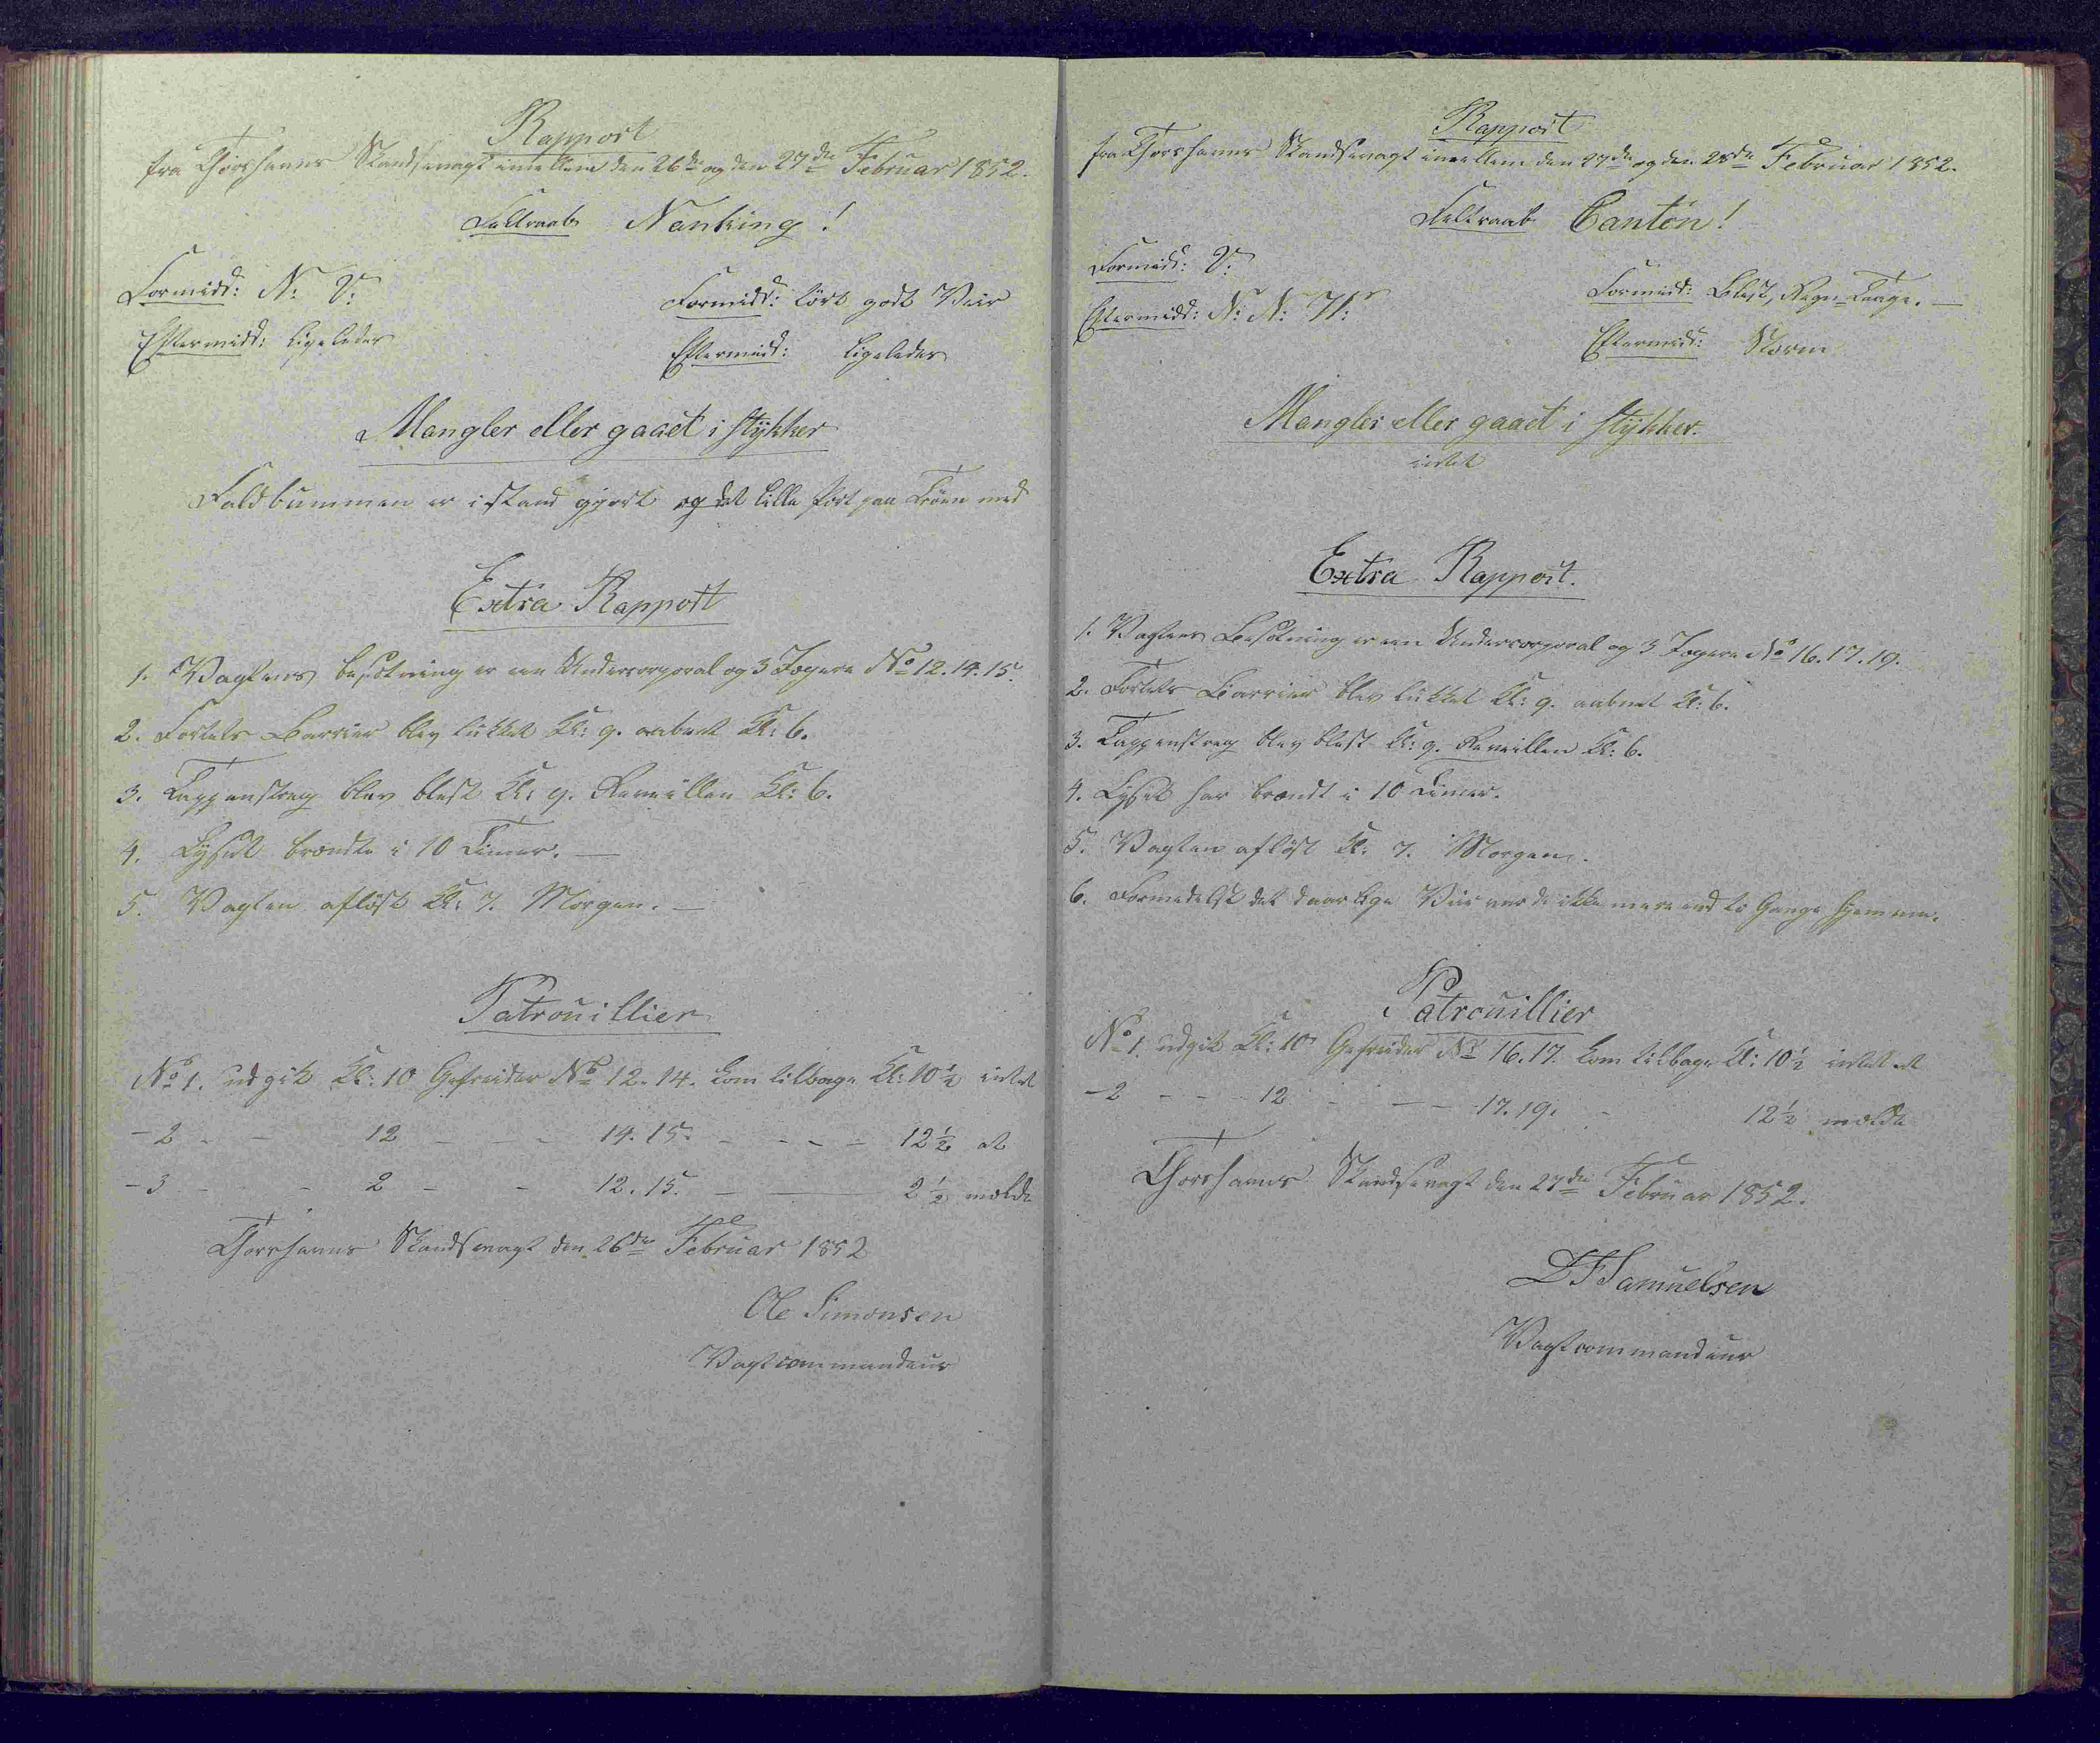 Rapport
fra Thorshavns Skandsevagt imellem den 26de og den 27de Februar 1852.
Feltraab Nanking!
Formidd: N: V:
Formidd: tört godt Veir
Eftermidd: ligeledes
Eftermidd: ligeledes
Mangler eller gaaet i stykker
Faldbummen er istand gjort og det lille fort paa Tröen med
Extra Rapport
1. Vagtens besætning er een Undercorporal og 3 Jægere No 12. 14. 15.
2. Fortets Barrier blev lukket Kl: 9. aabnet Kl: 6.
3. Tappenstreg blev blest Kl: 9. Reveillen Kl: 6.
4. Lyset brændte i 10 Timer. —
5. Vagten aflöst Kl: 7. Morgen. —
Patrouillier
No 1. udgik Kl: 10 Gefreider No 12. 14. kom tilbage Kl: 10½ intet
- 2 - - 12 - - - 14. 15. - - - - 12½ at
- 3 - - - 2 - - 12. 15. - - 2½ melde
Thorshavns Skandsevagt den 26de Februar 1852
Ole Simonsen
Vagtcommandeur
Rapport
fra Thorshavns Skandsevagt imellem den 27de og den 28de Februar 1852.
Feltraab Canton!
Formidd: V:
Formidd: Blæst, Regn-Taage. —
Eftermidd: N: N: V:
Eftermidd: Storm
Mangler eller gaaet i stykker.
intet
Extra Rapport.
1. Vagtens Besætning er een Undercorporal og 3 Jægere No 16. 17. 19.
2. Fortets Barrier blev lukket Kl: 9. aabnet Kl: 6.
3. Tappenstreg blev blest Kl: 9. Reveillen Kl: 6.
4. Lyset har brændt i 10 Timer.
5. Vagten aflöst Kl: 7. Morgen.
6. Formedelst det daarlige Veir var de ikke mere end to Gange hjemme.
Patrouillier
No 1. udgik Kl: 10 Gefreider No 16. 17. kom tilbage Kl: 10½ intet at
- 2 - - - 12 - - - 17. 19. - 12½ melde
Thorshavns Skandsevagt den 27de Februar 1852.
D F Samuelsen
Vagtcommandeur